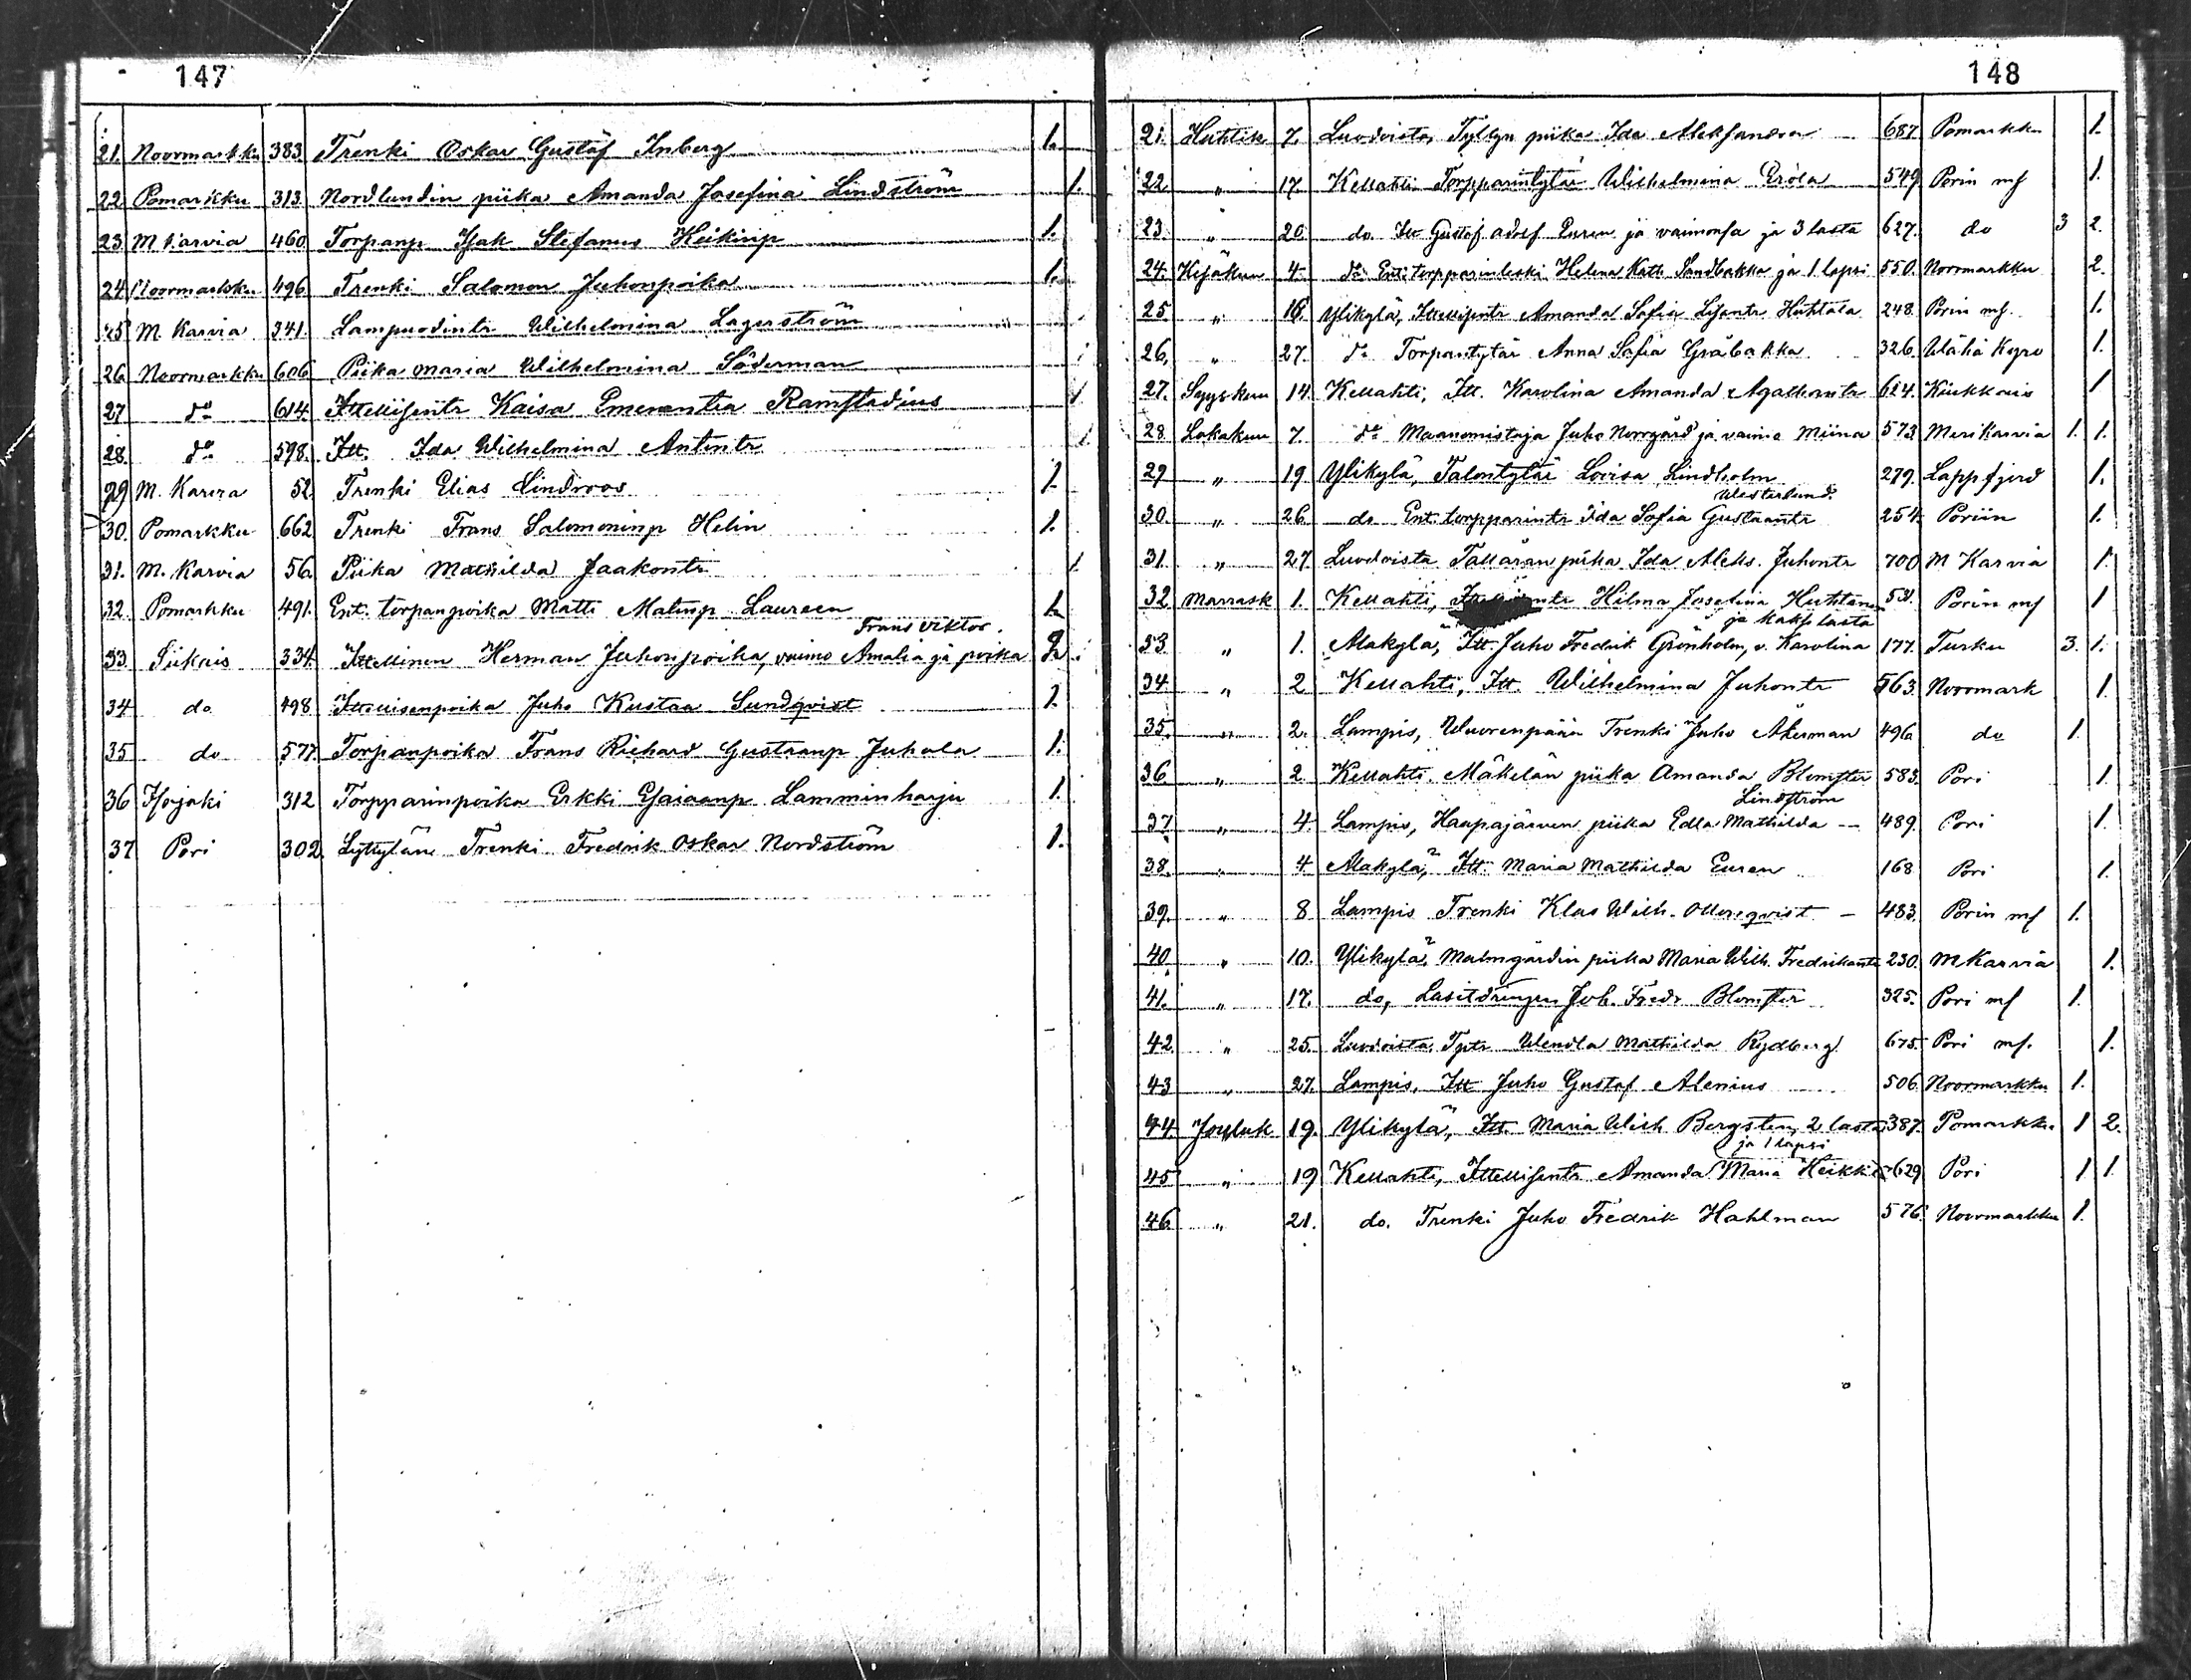 147
21. Noormarkku 383 Trenki Oskar Gustaf Inberg 1.
22 Pomarkku 313 Nordlundin piika Amanda Josefina Lindström 1.
23. M Karvia 460 Torpanp Isak Stefanus Heikinp 1.
24 Noormarkku 496 Trenki Salomon Juhonpoika 1.
25 M. Karvia 341. Lampuodintr Wilhelmina Lagerström
26 Noormarkku 606 Piika Maria Wilhelmina Söderman
27 do 614 Ittellisentr Kaisa Emerentia Ramstadius 1
28. do 598. Itt. Ida Wilhelmina Antintr
29 M. Karvia 52 Trenki Elias Lindroos 1.
30. Pomarkku 662 Trenki Frans Salomoninp Helin 1.
31. M. Karvia 56 Piika Mathilda Jaakontr 1
32. Pomarkku 491. Ent. torpanpoika Matti Matinp Laureen 1.
Frans Viktor.
33. Siikais 334 Ittellinen Herman Juhonpoika, vaimo Amalia ja poika 2 1.
34 do 498 Ittellisenpoika Juho Kustaa Sundqvist 1.
35 do 577. Torpanpoika Frans Richard Gustaanp Juhola 1.
36 Isojoki 312 Torpparinpoika Erkki Esaiaanp Lamminharju 1.
37 Pori 302. Lyttylän Trenki Fredrik Oskar Nordström 1.
148
21. Huhtik 7. Luodoista, Tyllyn piika Ida Aleksandra 687 Pomarkku 1.
22 " 17 Kellahti Torpparintytär Wilhelmina Erola 549 Porin ms 1.
23. " 20 do. Itt Gustaf Adolf Euren ja vaimonsa ja 3 lasta 627. do 3 2.
24. Kesäkuu 4 do Ent. torpparinleski Helena Kath. Sandbakka ja 1 lapsi 550. Noormarkku 2.
25 " 16 Ylikylä, Ittellisentr Amanda Sofia Lisantr Huhtala 248 Porin ms. 1.
26, " 27. do Torpantytär Anna Sofia Gräbakka 326. Wähä Kyro 1.
27. Syyskuu 14. Kellahti, Itt. Karolina Amanda Agathontr 614. Kiukkais 1
28 Lokakuu 7. do Maanomistaja Juho Norrgård ja vaimo Miina 573 Merikarvia 1. 1.
29 " 19 Ylikylä, Talontytär Lovisa Lindholm 279. Lappfjerd 1.
Westerlund.
30. " 26 do Ent. torpparintr Ida Sofia Gustaantr 254. Poriin 1.
31. " 27. Luodoista Tallärän piika Ida Aleks. Juhontr 700 M Karvia 1.
32 Marrask 1. Kellahti, Hilma Josefina Huhtanen 531. Porin ms 1
ja kaksi lasta
33 " 1. Alakylä, Itt. Juho Fredrik Grönholm, v. Karolina 177. Turku 3. 1.
34. " 2 Kellahti, Itt. Wilhelmina Juhontr 563. Noormark 1.
35. " 2. Lampis, Wuorenpään Trenki Juho Åkerman 496 do 1.
36 " 2. Kellahti. Mäkelän piika Amanda Blomster 583. Pori 1.
Lindström
37 " 4. Lampis, Haapajärven piika Edla Mathilda — 489. Pori 1.
38. " 4 Alakylä, Itt. Maria Mathilda Euren 168 Pori 1.
39. " 8 Lampis Trenki Klas Wilh. Ollonqvist — 483. Porin ms 1.
40. " 10. Ylikylä, Malmgårdin piika Maria Wilh. Fredrikantr 230. M Karvia 1.
41. " 17. do, Joh. Fredr Blomster 325. Pori ms 1.
42. " 25. Luodoista, Tptr Wendla Mathilda Rydberg 675. Pori ms. 1.
43 " 27. Lampis, Itt Juho Gustaf Alenius 506. Noormarkku 1.
44. Jouluk 19. Ylikylä, Itt. Maria Wilh Bergsten, 2 lasta 387. Pomarkku. 1 2.
ja 1 lapsi
45 " 19 Kellahti, Ittellisentr Amanda Maria Heikki 629 Pori 1 1.
46. " 21. do. Trenki Juho Fredrik Hahlman 576. Noormarkku 1.